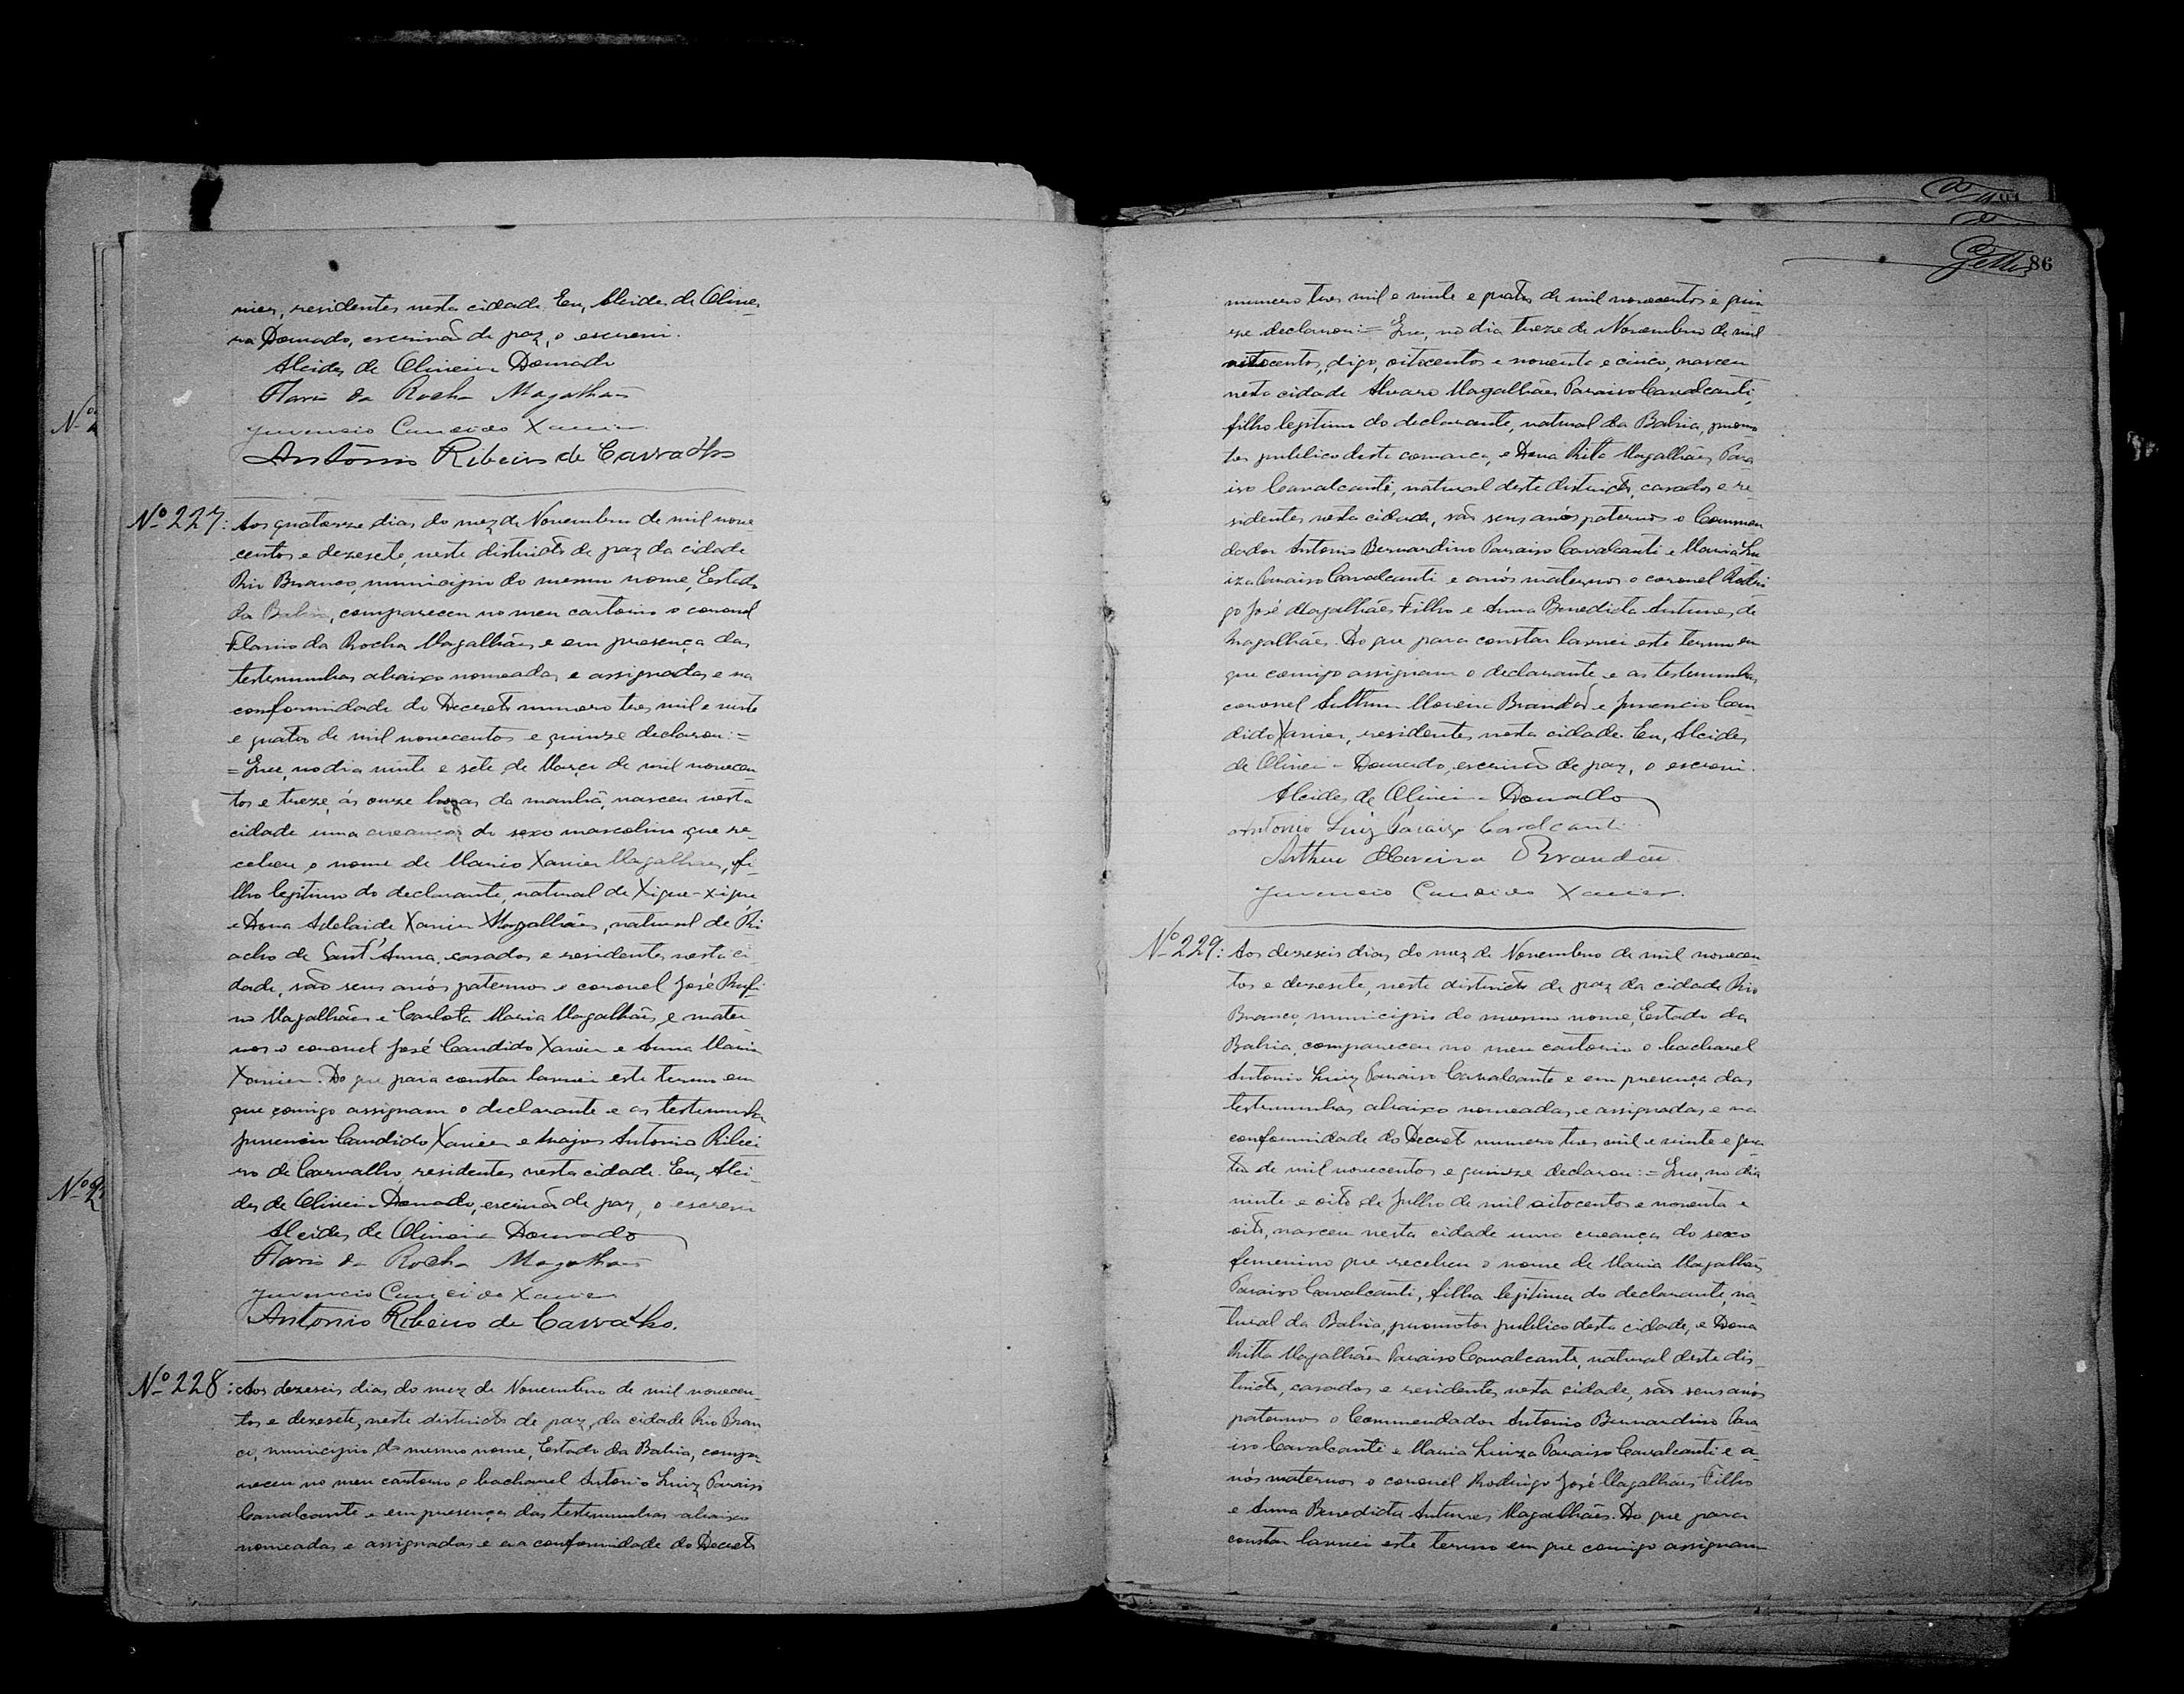 vier, residentes nesta cidade. Eu, Alcides de Olivei
ra Dourado, escrivão de paz, o escrevi.
Alcides de Oliveira Dourado
Flavio da Rocha Magalhães
Juvencio Candido Xavier
Antônio Ribeiro de Carvalho
Nº 227: Aos quatorze dias do mez de Novembro de mil nove
centos e dezesete, neste districto de paz da cidade
Rio Branco, municipio do mesmo nome, Estado
da Bahia, compareceu no meu cartorio o coronel
Flavio da Rocha Magalhães e em presença das
testemunhas abaixo nomeadas e assignadas e na
conformidade do Decreto numero tres mil e vinte
e quatro de mil novecentos e quinze declarou:=
=Que, no dia vinte e sete de Março de mil novecen
tos e treze, ás onze horas da manhã, nasceu nesta
cidade uma creança do sexo masculino que re-
cebeu o nome de Mario Xavier Magalhães, fi-
lho legitimo do declarante, natural de Xique-xique
e Dona Adelaide Xavier Magalhães, natural de Ri
acho de Sant'Anna, casados e residentes nesta ci-
dade, são seus avós paternos o coronel José Rufi-
no Magalhães e Carlota Maria Magalhães, e mater
nos o coronel José Candido Xavier e Anna Maria
Xavier. Do que para constar lavrei este termo em
que comigo assignam o declarante e as testemunhas
Juvencio Candido Xavier e major Antonio Ribei
ro de Carvalho, residentes nesta cidade. Eu, Alci-
des de Oliveira Dourado, escrivão de paz, o escrevi
Alcides de Oliveira Dourado
Flavio da Rocha Magalhães
Juvencio Candido Xavier
Antonio Ribeiro de Carvalho.
Nº 228: Aos dezeseis dias do mez de Novembro de mil novecen-
tos e dezesete, neste districto de paz da cidade Rio Bran
co, municipio do mesmo nome, Estado da Bahia, compa-
receu no meu cartorio o bacharel Antonio Luiz Paraiso
Cavalcante e em presença das testemunhas abaixo
nomeadas e assignadas e na conformidade do Decreto
86
numero tres mil e vinte e quatro de mil novecentos e quin
ze declarou:= Que, no dia treze de Novembro de mil
oitocentos, digo, oitocentos e noventa e cinco, nasceu
nesta cidade Alvaro Magalhães Paraiso Cavalcanti,
filho legitimo do declarante, natural da Bahia, promo
tor publico desta comarca, e Dona Rita Magalhães Para
iso Cavalcanti, natural deste districto, casados e re-
sidentes nesta cidade, são seus avós paternos o Commen
dador Antonio Bernardino Paraiso Cavalcanti e Maria Lu
iza Paraiso Cavalcanti e avós maternos o coronel Rodri
go José Magalhães Filho e Anna Benedicta Antunes de
Magalhães. Do que para constar lavrei este termo em
que comigo assignam o declarante e as testemunhas
coronel Arthur Moreira Brandão e Juvencio Can
dido Xavier, residentes nesta cidade. Eu, Alcides
de Oliveira Dourado, escrivão de paz, o escrevi.
Alcides de Oliveira Dourado
Antonio Luiz Paraizo Cavalcanti
Arthur Moreira Brandão
Juvencio Candido Xavier.
Nº 229: Aos dezeseis dias do mez de Novembro de mil novecen
tos e dezesete, neste districto de paz da cidade Rio
Branco, municipio do mesmo nome, Estado da
Bahia, compareceu no meu cartorio o bacharel
Antonio Luiz Paraiso Cavalcante e em presença das
testemunhas abaixo nomeadas e assignadas e na
conformidade do Decreto numero tres mil e vinte e qua
tro de mil novecentos e quinze declarou:= Que, no dia
vinte e oito de Julho de mil oitocentos e noventa e
oito, nasceu nesta cidade uma creança do sexo
femenino que recebeu o nome de Maria Magalhães
Paraiso Cavalcanti, filha legitima do declarante, na-
tural da Bahia, promotor publico desta cidade, e Dona
Ritta Magalhães Paraiso Cavalcante, natural deste dis-
tricto, casados e residentes nesta cidade, são seus avós
paternos o Commendador Antonio Bernardino Para
iso Cavalcante e Maria Luiza Paraiso Cavalcanti e a-
vós maternos o coronel Rodrigo José Magalhães Filho
e Anna Benedicta Antunes Magalhães. Do que para
constar lavrei este termo em que comigo assignam